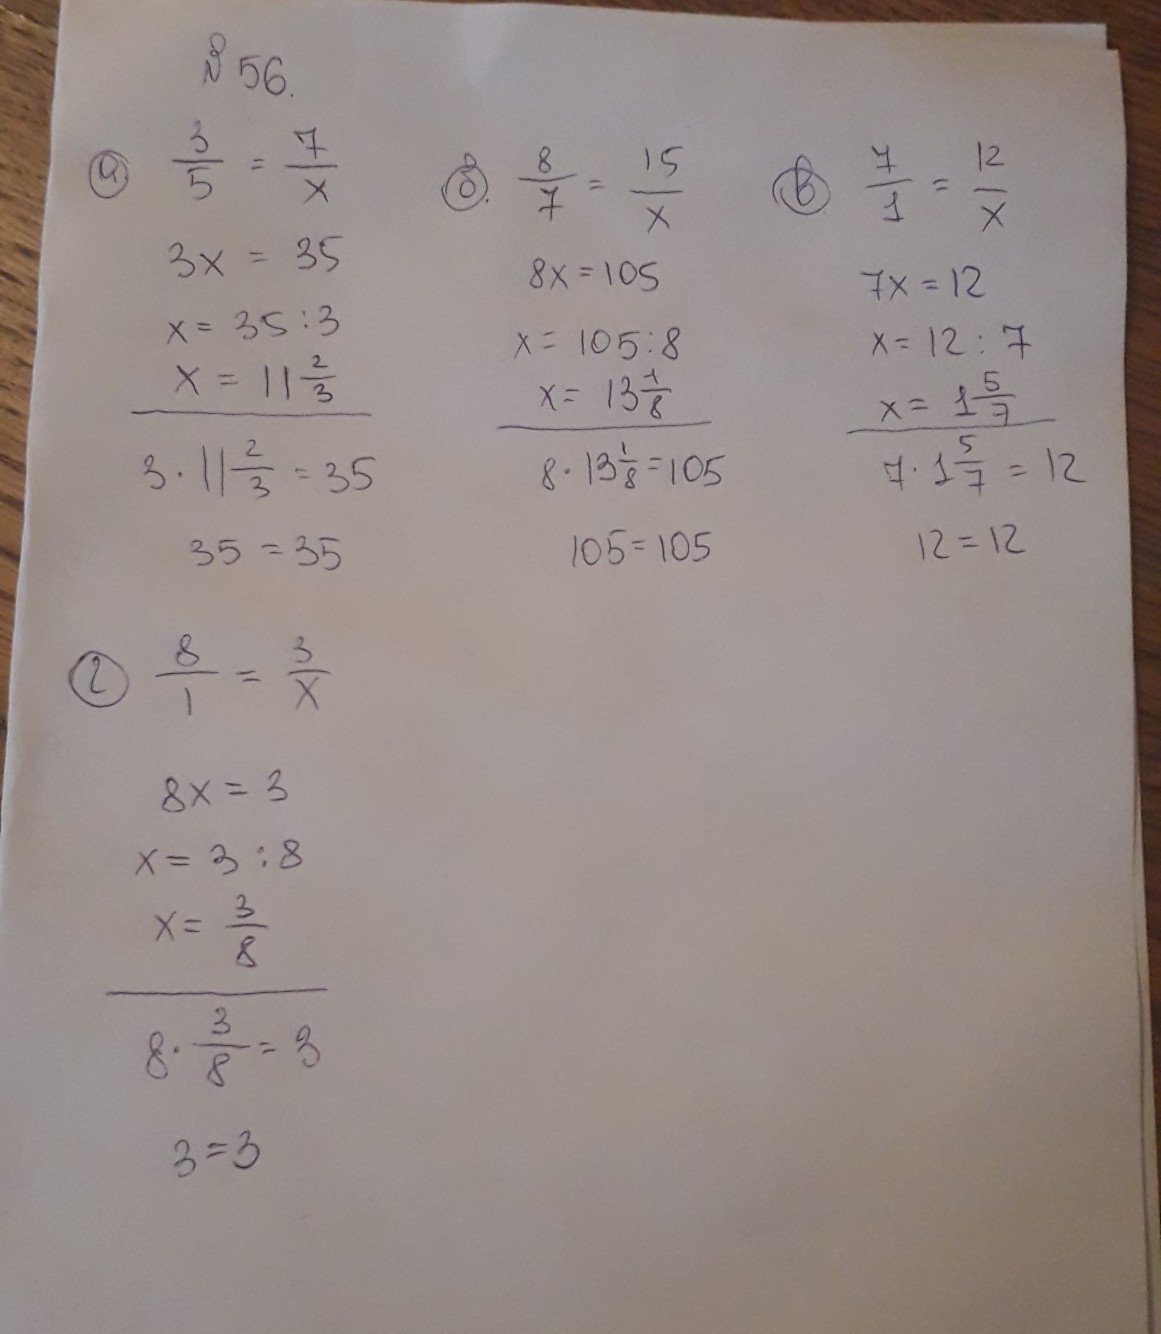 № 56.
а) 3/5 = 7/x
3x = 35
x = 35 : 3
x = 11 2/3
3 · 11 2/3 = 35
35 = 35
б). 8/7 = 15/x
8x = 105
x = 105 : 8
x = 13 1/8
8 · 13 1/8 = 105
105 = 105
в). 7/1 = 12/x
7x = 12
x = 12 : 7
x = 1 5/7
7 · 1 5/7 = 12
12 = 12
г) 8/1 = 3/x
8x = 3
x = 3 : 8
x = 3/8
8 · 3/8 = 3
3 = 3